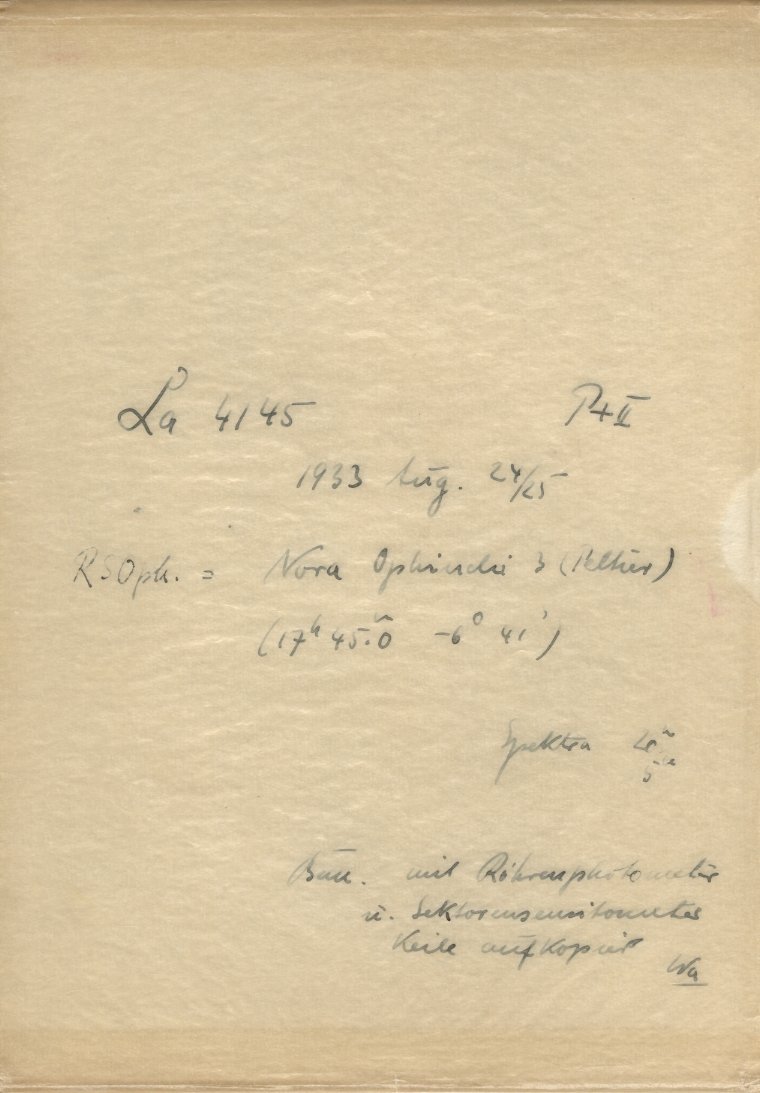 La 4145 P+II
1933 Aug. 24/25
RS Oph. = Nova Ophiuchi 3 (Peltier)
(17h 45.m0 -6° 41')
Spektra
5m
mit Röhrenphotometer
u. Sektorensensitometer
Keile aufkopiert
Wa